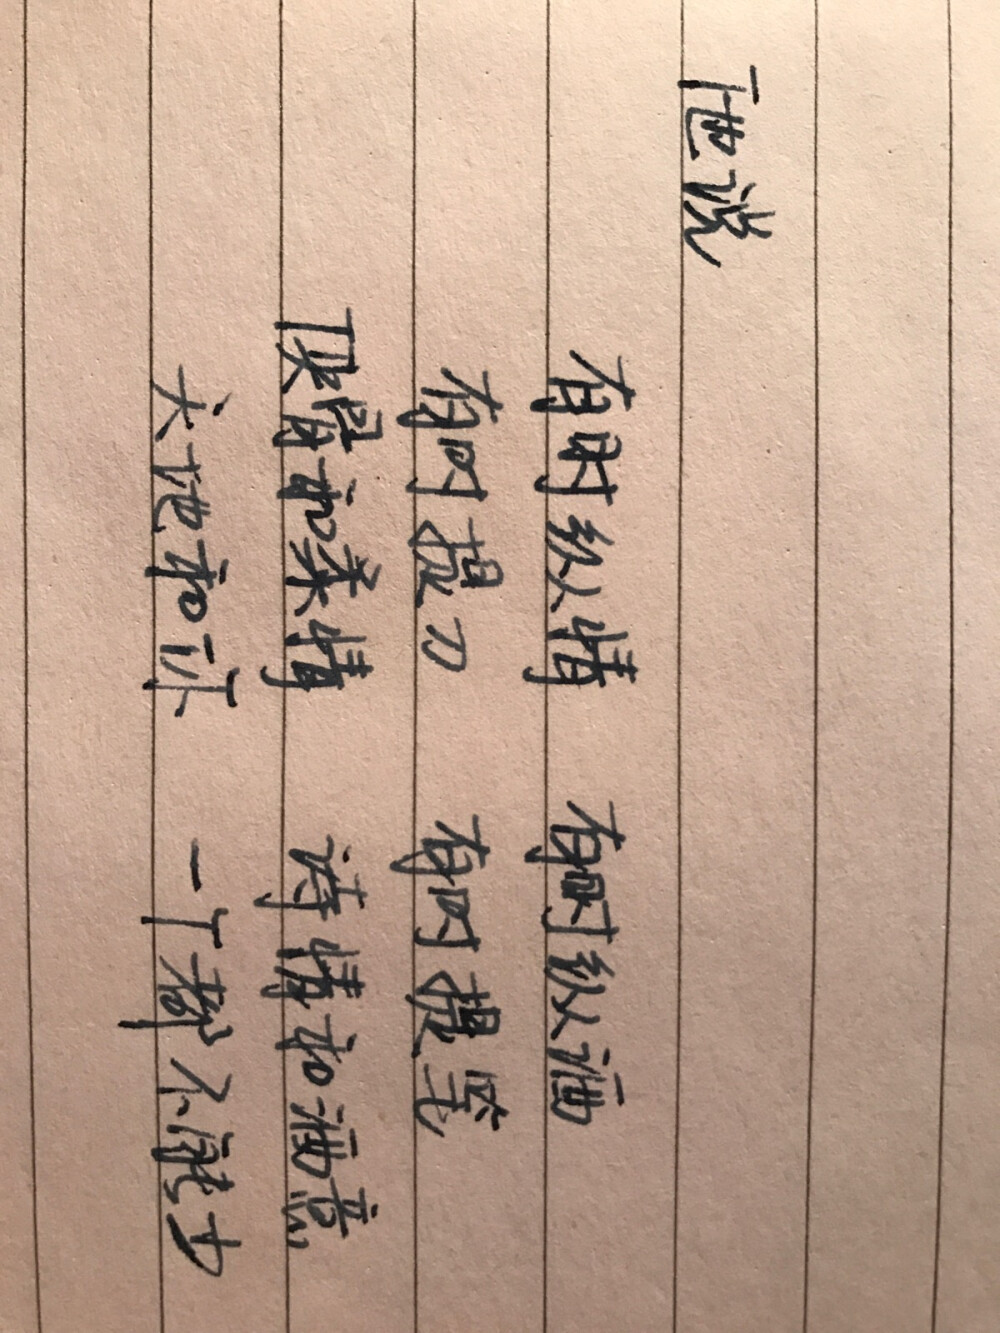 他说
有时纵情 有时纵酒
有时提刀 有时提笔
侠骨和柔情 诗情和酒意
大地和你 一个都不能少